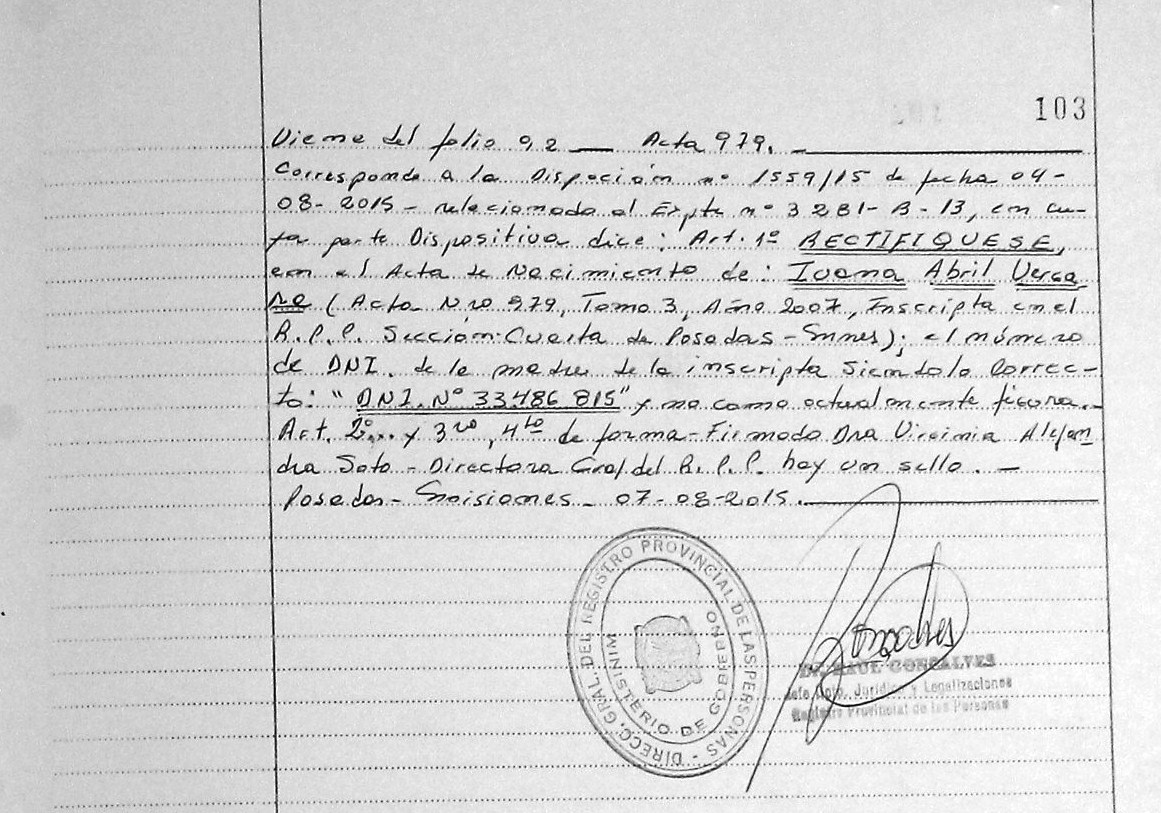 103
Viene del folio 92 — Acta 979. —
Corresponde a la Disposición nº 1559/15 de fecha 04-
08-2015 - relacionado al Expte nº 3281-B-13, en cu-
ya parte Dispositiva dice: Art. 1º RECTIFIQUESE,
en el Acta de Nacimiento de: Ivana Abril Verga
ra (Acta Nro 979, Tomo 3, Año 2007, Inscripta en el
R.P.P. Sección Cuarta de Posadas - Mnes); el número
de DNI. de la madre de la inscripta siendolo correc-
to: "DNI. Nº 33.486.815" y no como actualmente figura.-
Art. 2º... y 3ro, 4to de forma - Firmado Dra Virginia Alejan
dra Soto - Directora Gral del R.P.P. hay un sello. —
Posadas - Misiones - 07-08-2015.
DIRECC. GRAL. DEL REGISTRO PROVINCIAL DE LAS PERSONAS -
MINISTERIO DE GOBIERNO
Dr. RAUL GONSALVES
Jefe Dpto. Jurídico y Legalizaciones
Registro Provincial de las Personas